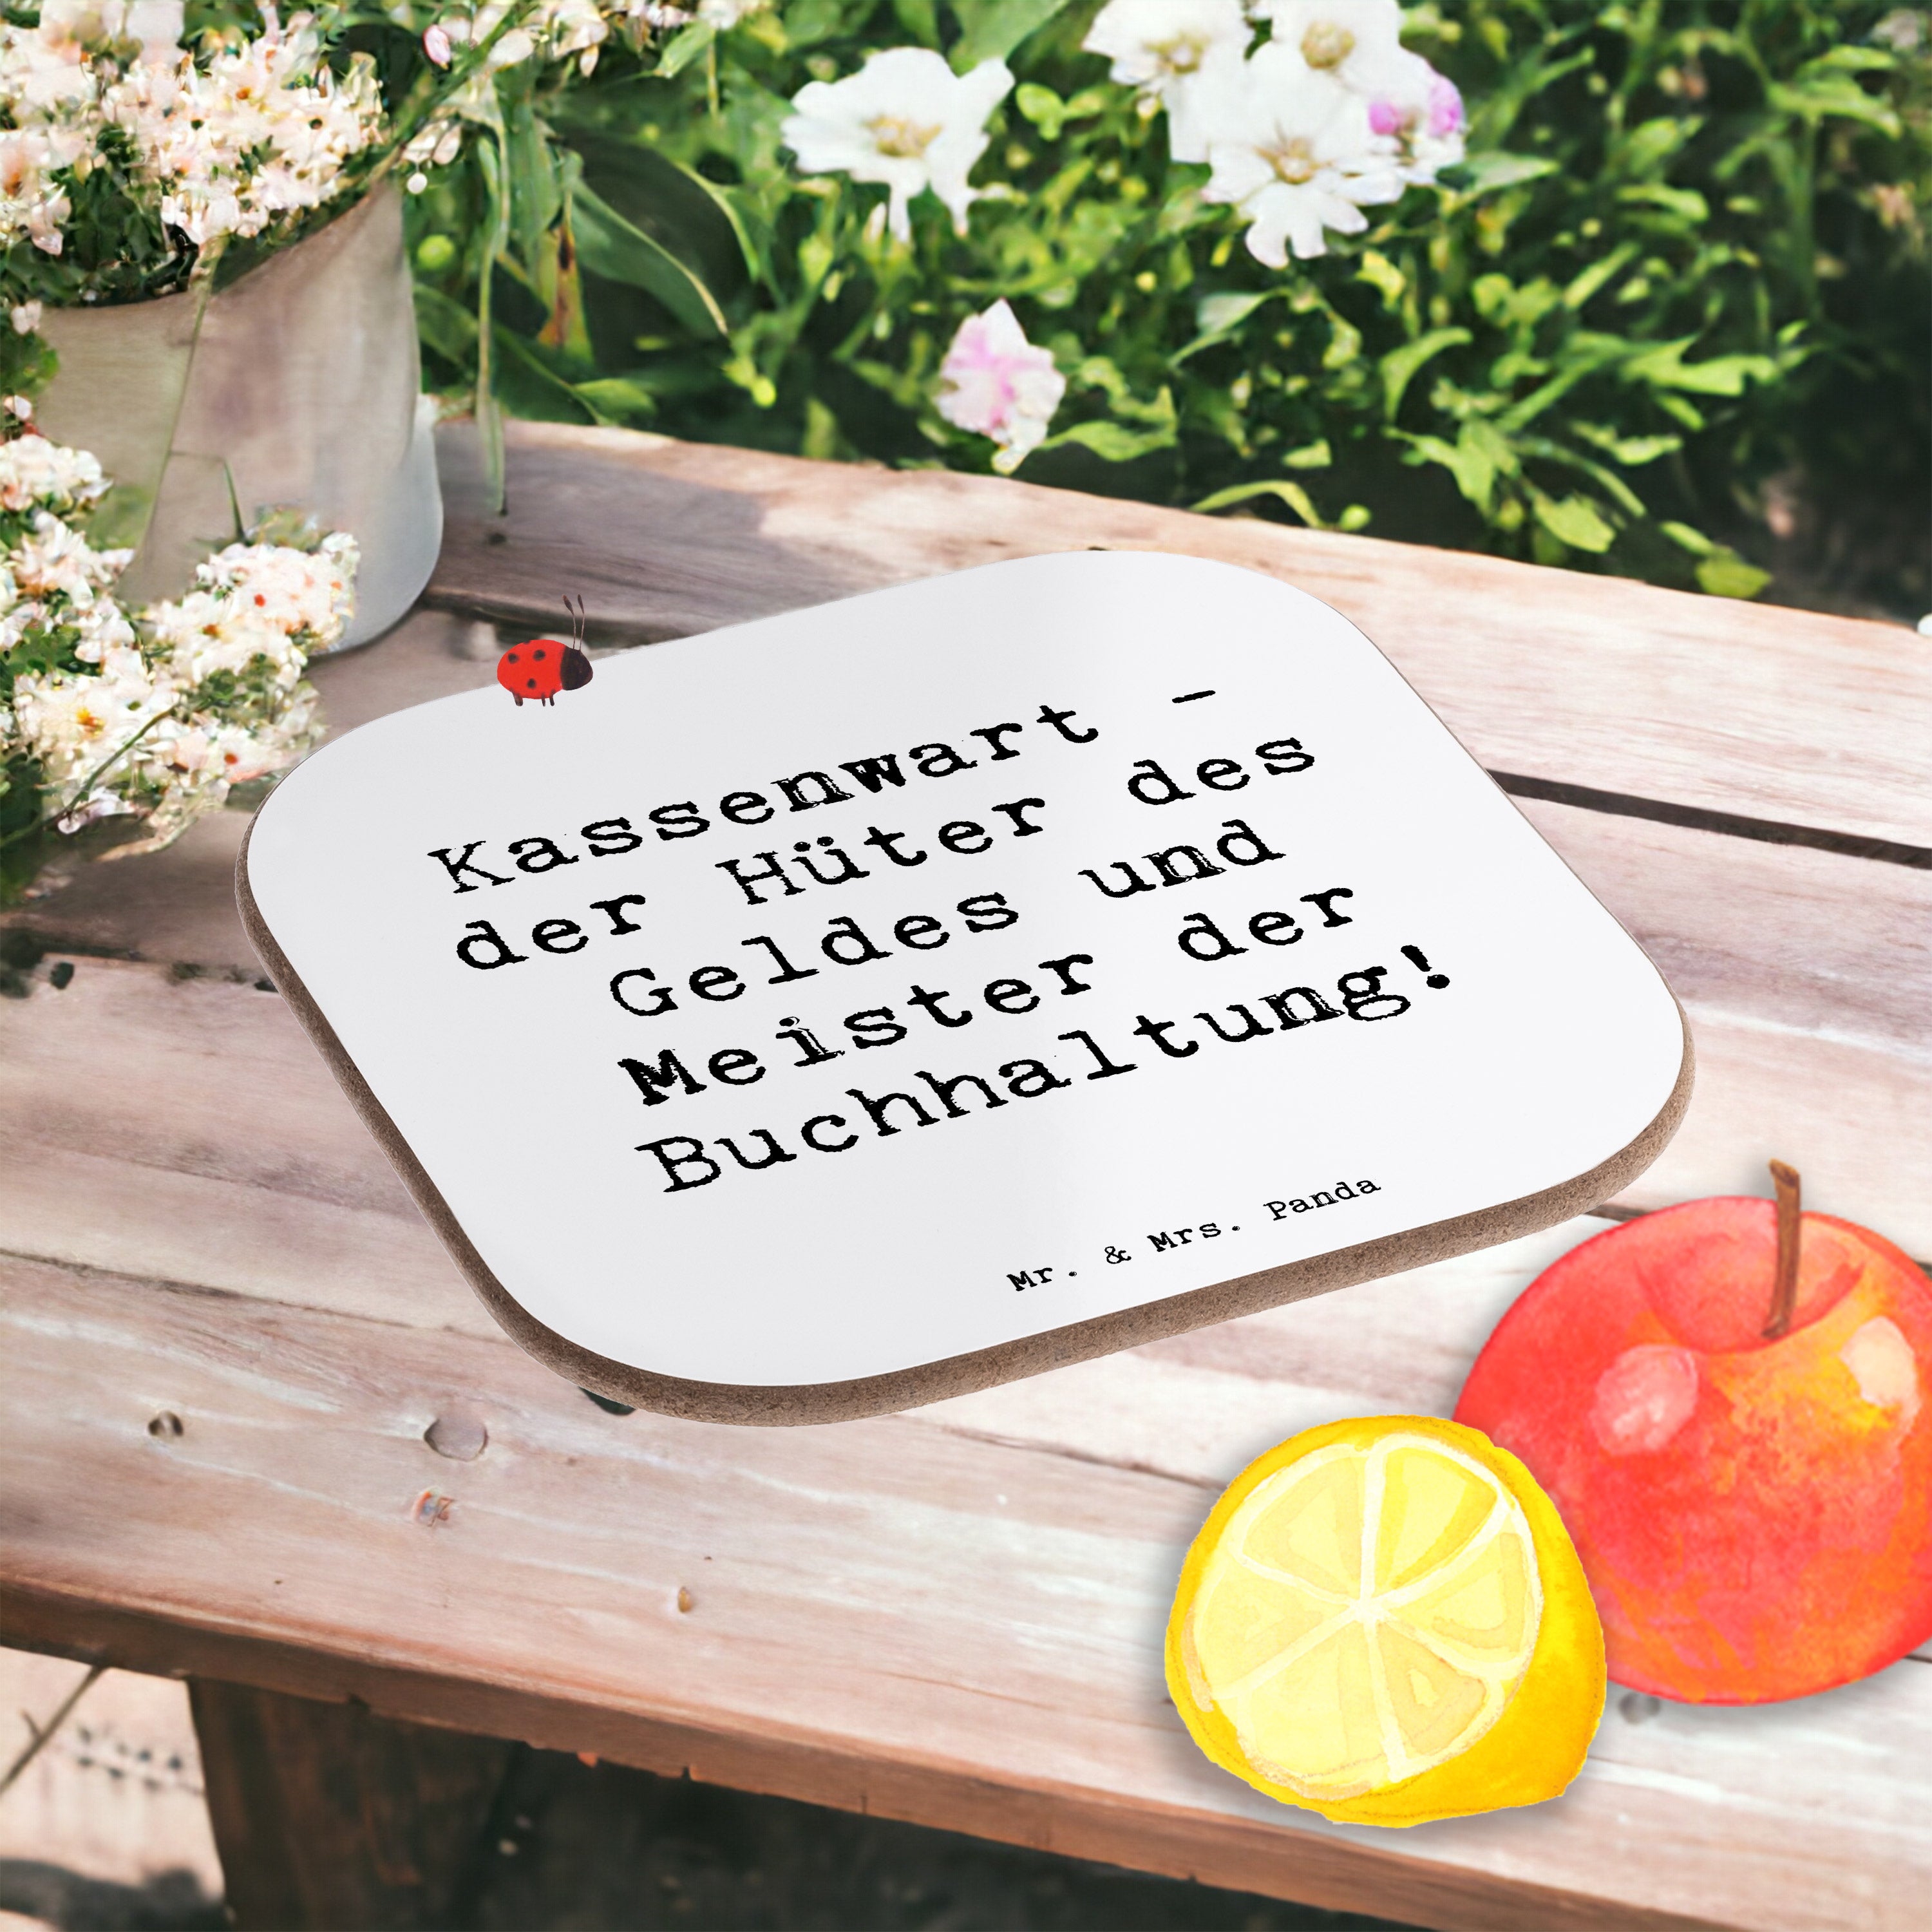 Kassenwart -
der Hüter des
Geldes und
Meister der
Buchhaltung!
Mr. & Mrs. Panda